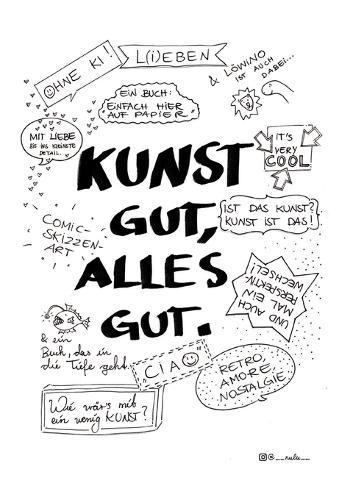 OHNE KI!
L(I)EBEN
& LÖWINO
IST AUCH
DABEI...
EIN BUCH:
EINFACH HIER
AUF PAPIER.
MIT LIEBE
BIS INS KLEINSTE
DETAIL.
IT'S
VERY
COOL
KUNST
GUT,
ALLES
GUT.
IST DAS KUNST?
KUNST IST DAS!
COMIC-
SKIZZEN-
ART
UND AUCH
MAL EIN
PERSPEKTIV-
WECHSEL!
& ein
Buch, das in
die Tiefe geht.
CIAO
RETRO,
AMORE,
NOSTALGIE
Wie wär's mit
ein wenig KUNST?